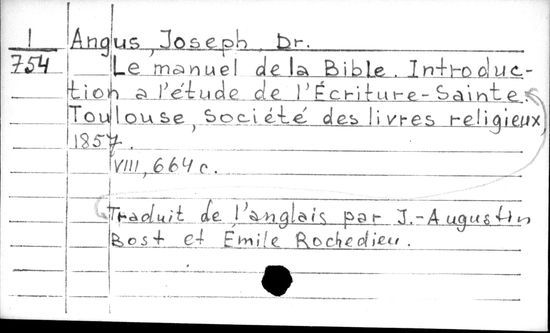 1 Angus, Joseph, Dr.
754 Le manuel de la Bible. Introduc-
tion a l'étude de l'Écriture-Sainte.
Toulouse, Société des livres religieux,
1857.
VIII, 664 c.
Traduit de l'anglais par J.-Augustin
Bost et Emile Rochedieu.